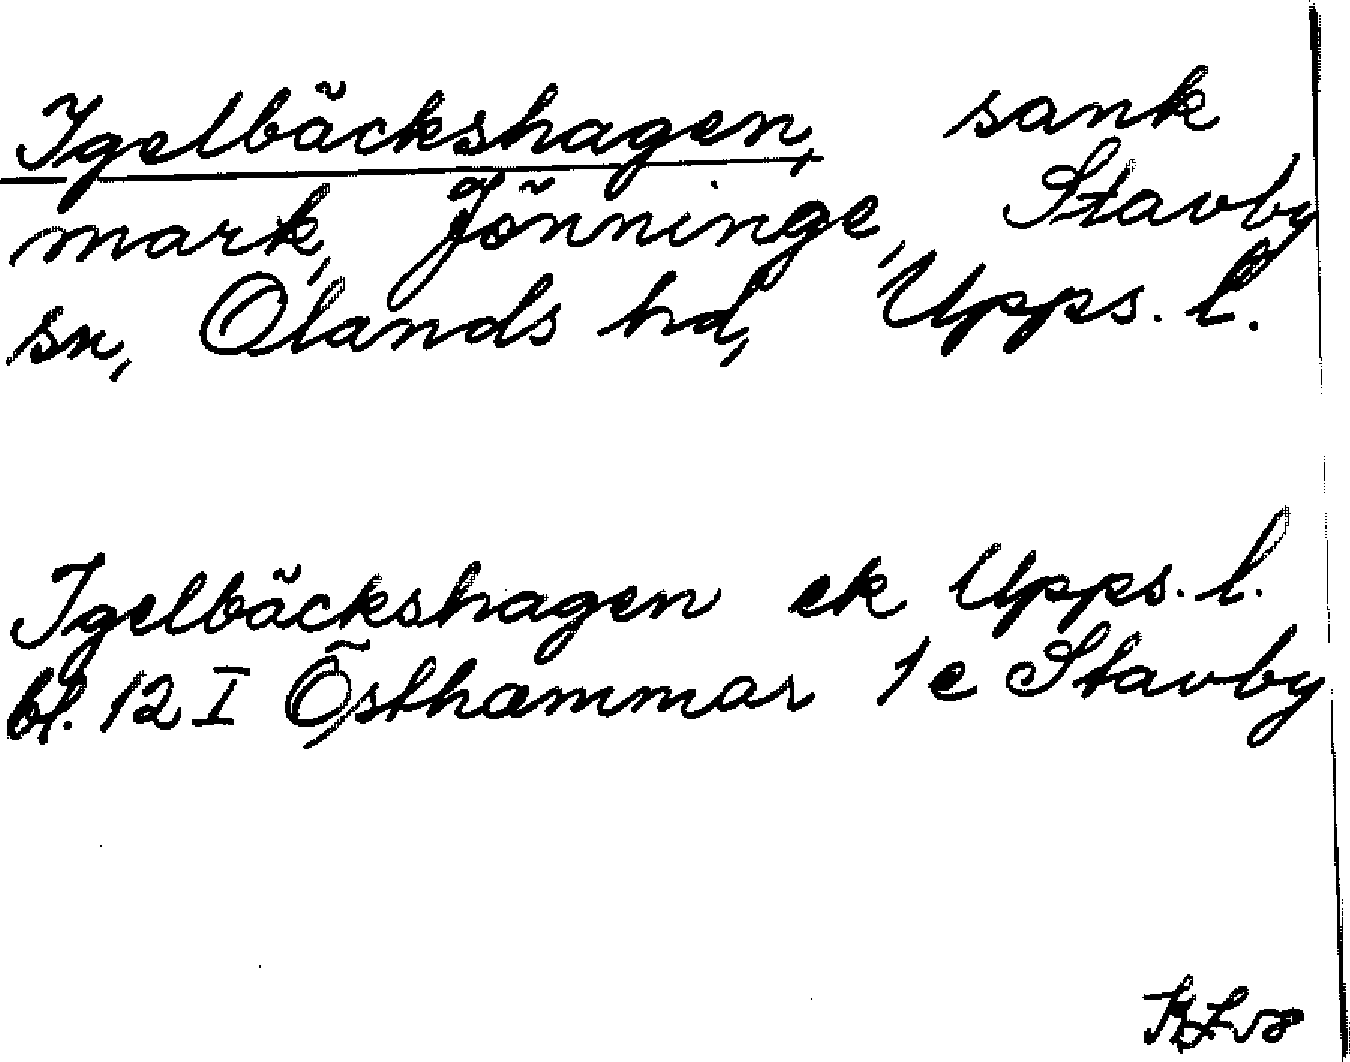 Igelbäckshagen, sank
mark, Jönninge, Stavby
sn, Olands hd, Upps. l.
Igelbäckshagen ek Upps. l.
bl. 12 I Östhammar 1 e Stavby